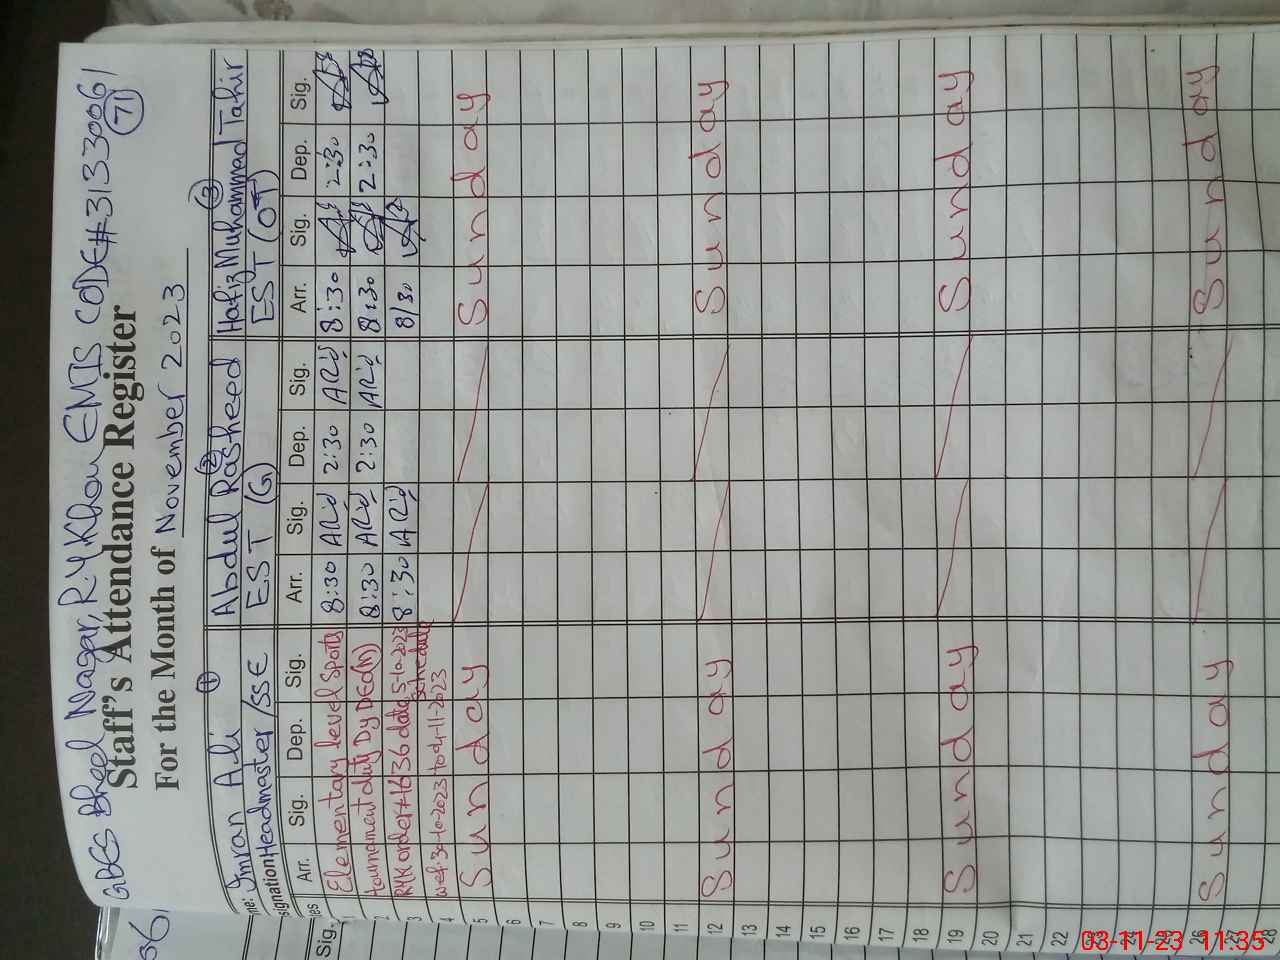 GBES Bheel Nagar, R.Y.Khan EMIS CODE#31330061
71
Staff's Attendance Register
For the Month of November 2023
1 2 3
me: Imran Ali Abdul Rasheed Hafiz Muhammad Tahir
signation Headmaster/SSE EST (G) EST (OT)
es Arr. Sig. Dep. Sig. Arr. Sig. Dep. Sig. Arr. Sig. Dep. Sig.
1 Elementary level Sports 8:30 2:30 8:30 2:30
2 Tournament duty Dy DEO(M) 8:30 2:30 8:30 2:30
3 RYK order#1636 date 5-10-2023 8:30 8/30
schedule
4 wef: 30-10-2023 to 04-11-2023
5 Sunday Sunday
6
7
8
9
10
11
12 Sunday Sunday
13
14
15
16
17
18
19 Sunday Sunday
20
21
22
23
24
25
26 Sunday Sunday
27
28
Sig.
03-11-23 11:35